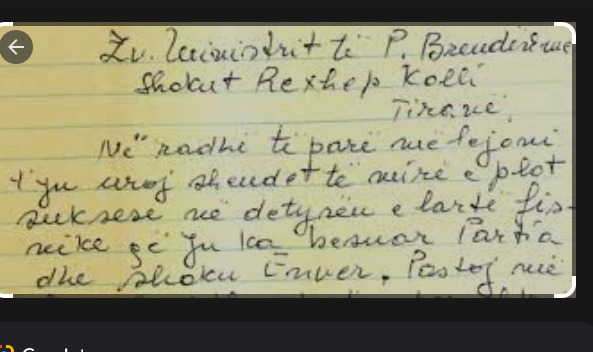 Zv. Ministrit të P. Brendëshme
Shokut Rexhep Kolli
Tiranë,
Në radhë të parë më lejoni
t'ju uroj shëndet të mirë e plot
suksese në detyrën e lartë fis-
nike që ju ka besuar Partia
dhe shoku Enver. Pastaj më